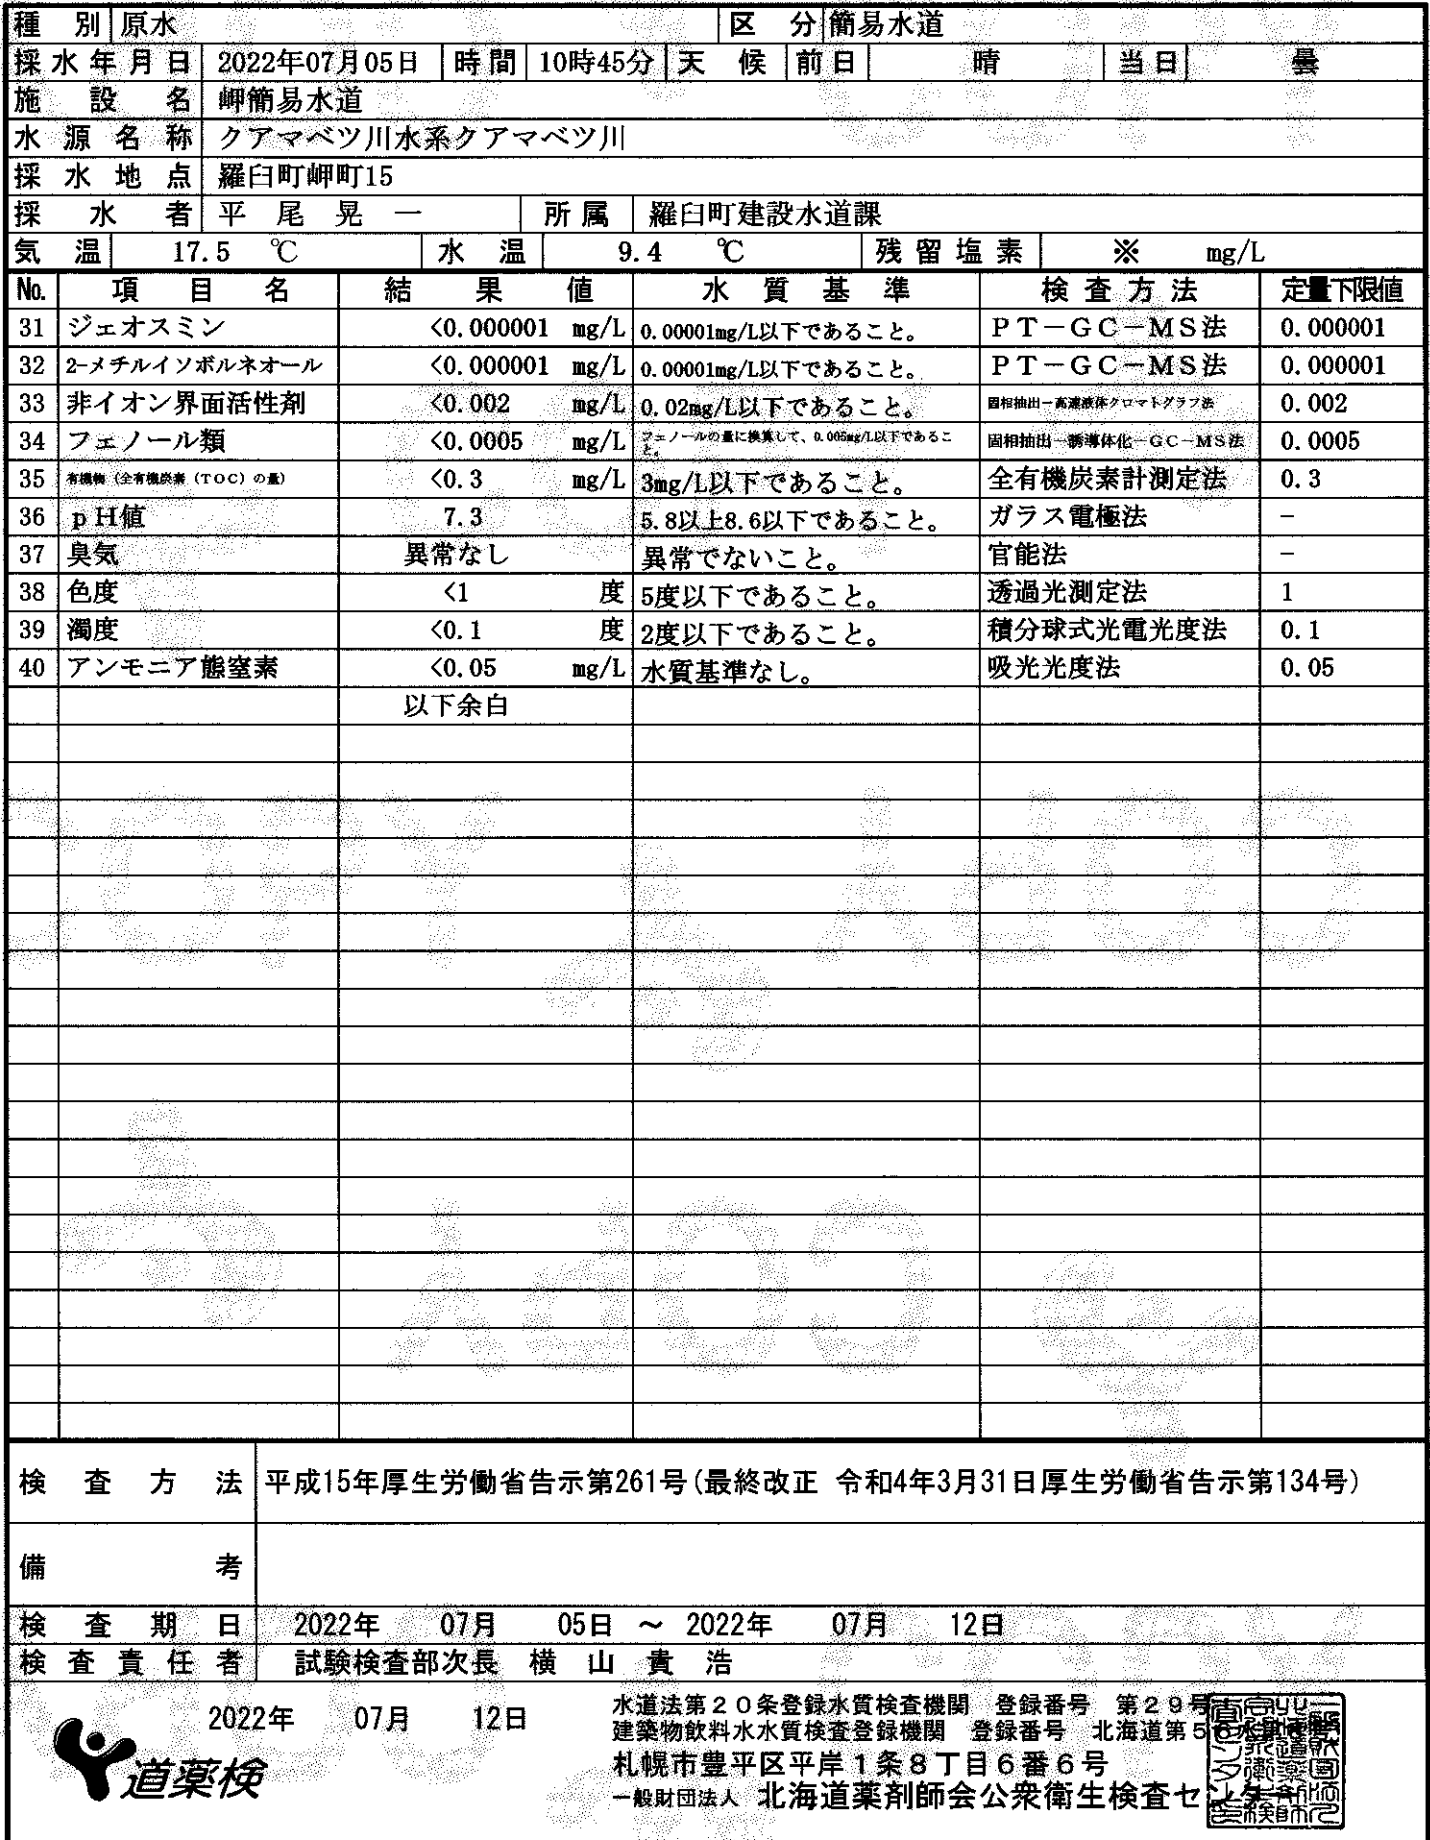 種別 原水 区分 簡易水道
採水年月日 2022年07月05日 時間 10時45分 天候 前日 晴 当日 曇
施設名 岬簡易水道
水源名称 クアマベツ川水系クアマベツ川
採水地点 羅臼町岬町15
採水者 平尾晃一 所属 羅臼町建設水道課
気温 17.5 ℃ 水温 9.4 ℃ 残留塩素 ※ mg/L
No. 項目名 結果値 水質基準 検査方法 定量下限値
31 ジェオスミン <0.000001 mg/L 0.00001mg/L以下であること。 PT－GC－MS法 0.000001
32 2-メチルイソボルネオール <0.000001 mg/L 0.00001mg/L以下であること。 PT－GC－MS法 0.000001
33 非イオン界面活性剤 <0.002 mg/L 0.02mg/L以下であること。 固相抽出－高速液体クロマトグラフ法 0.002
34 フェノール類 <0.0005 mg/L フェノールの量に換算して、0.005mg/L以下であること。 固相抽出－誘導体化－GC－MS法 0.0005
35 有機物（全有機炭素（TOC）の量） <0.3 mg/L 3mg/L以下であること。 全有機炭素計測定法 0.3
36 pH値 7.3 5.8以上8.6以下であること。 ガラス電極法 －
37 臭気 異常なし 異常でないこと。 官能法 －
38 色度 <1 度 5度以下であること。 透過光測定法 1
39 濁度 <0.1 度 2度以下であること。 積分球式光電光度法 0.1
40 アンモニア態窒素 <0.05 mg/L 水質基準なし。 吸光光度法 0.05
以下余白
検査方法 平成15年厚生労働省告示第261号(最終改正 令和4年3月31日厚生労働省告示第134号)
備考
検査期日 2022年 07月 05日 ～ 2022年 07月 12日
検査責任者 試験検査部次長 横山貴浩
2022年 07月 12日
水道法第２０条登録水質検査機関 登録番号 第２９号
建築物飲料水水質検査登録機関 登録番号 北海道第５６
札幌市豊平区平岸１条８丁目６番６号
一般財団法人 北海道薬剤師会公衆衛生検査センター
道薬検
COPY
COPY
COPY